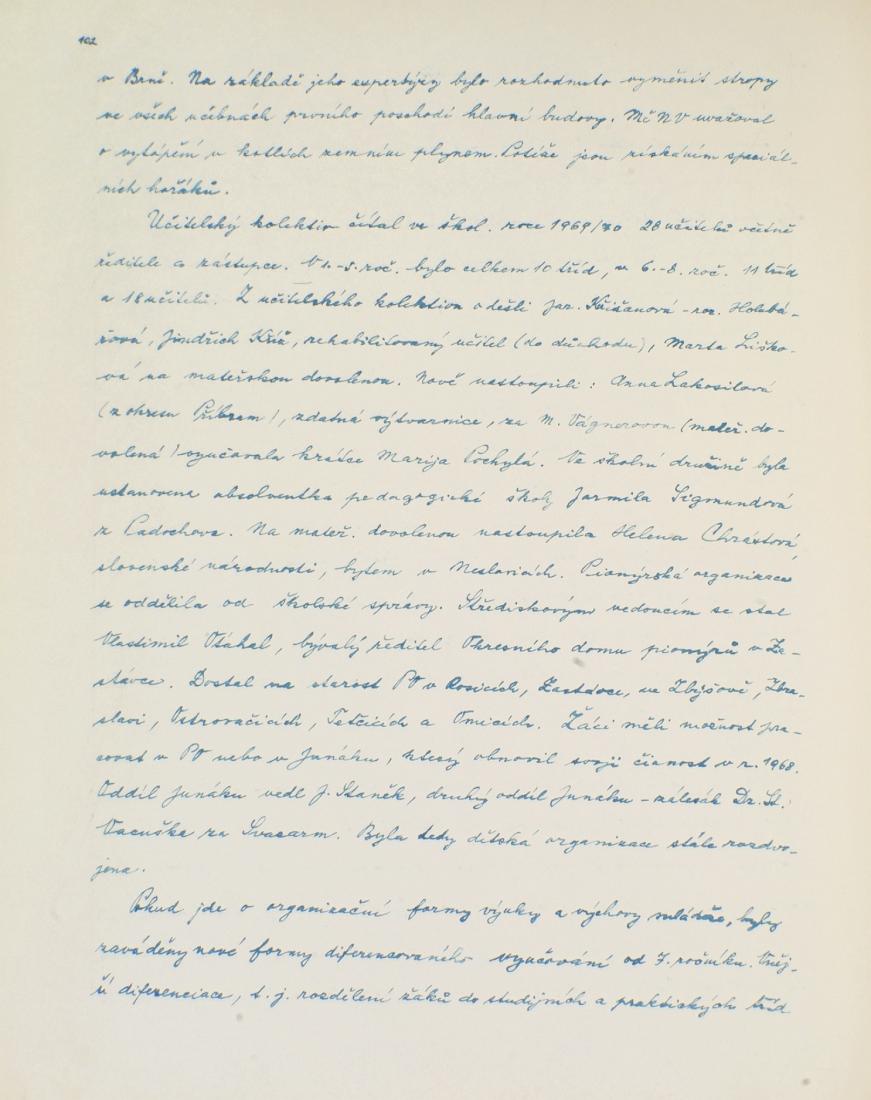 102
v Brně. Na základě jeho expertýzy bylo rozhodnuto vyměnit stropy
ve všech učebnách prvního poschodí hlavní budovy. MěNV uvažoval
o vytápění v kotlích zemním plynem. Potíže jsou získáním speciál-
ních hořáků.
Učitelský kolektiv čítal ve škol. roce 1969/70 28 učitelů včetně
ředitele a zástupce. V 1.-5. roč. bylo celkem 10 tříd, v 6.-8. roč. 11 tříd
a 18 učitelů. Z učitelského kolektivu odešli Jar. Křišanová - roz. Holubá-
řová, Jindřich Kříž, rehabilitovaný učitel (do důchodu), Marta Liško-
vá na mateřskou dovolenou. Nově nastoupili: Anna Lakosilová
(z okresu Příbram), zdatná výtvarnice, za M. Vágnerovou (mateř. do-
volená) vyučovala krátce Marija Pochylá. Ve školní družině byla
ustanovena absolventka pedagogické školy Jarmila Sigmundová
z Padochova. Na mateř. dovolenou nastoupila Helena Chrástová,
slovenské národnosti, bytem v Neslovicích. Pionýrská organizace
se oddělila od školské správy. Střediskovým vedoucím se stal
Vlastimil Otáhal, bývalý ředitel Okresního domu pionýrů v Za-
stávce. Dostal na starost PO v Rosicích, Zastávce, ve Zbýšově, Zbra-
slavi, Ostrovačicích, Tetčicích a Omicích. Žáci měli možnost pra-
covat v PO nebo v Junáku, který obnovil svoji činnost v r. 1968.
Oddíl Junáku vedl J. Staněk, druhý oddíl Junáku - zálesák Dr. St.
Vacuška za Svazarm. Byla tedy dětská organizace stále rozdvo-
jena.
Pokud jde o organizační formy výuky a výchovy mládeže, byly
zaváděny nové formy diferencovaného vyučování od 7. ročníku. Vněj-
ší diferenciace, t. j. rozdělení žáků do studijních a praktických tříd